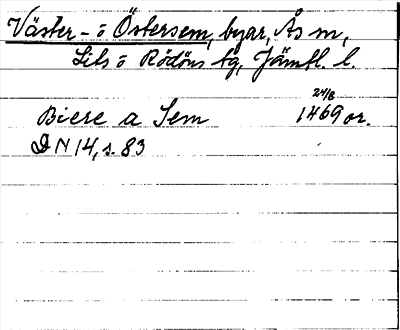 Väster- o Östersem, byar, Ås sn,
Lits o Rödöns tg, Jämtl. l.
24/8
Biere a Sem 1469 or.
DN 14, s. 83